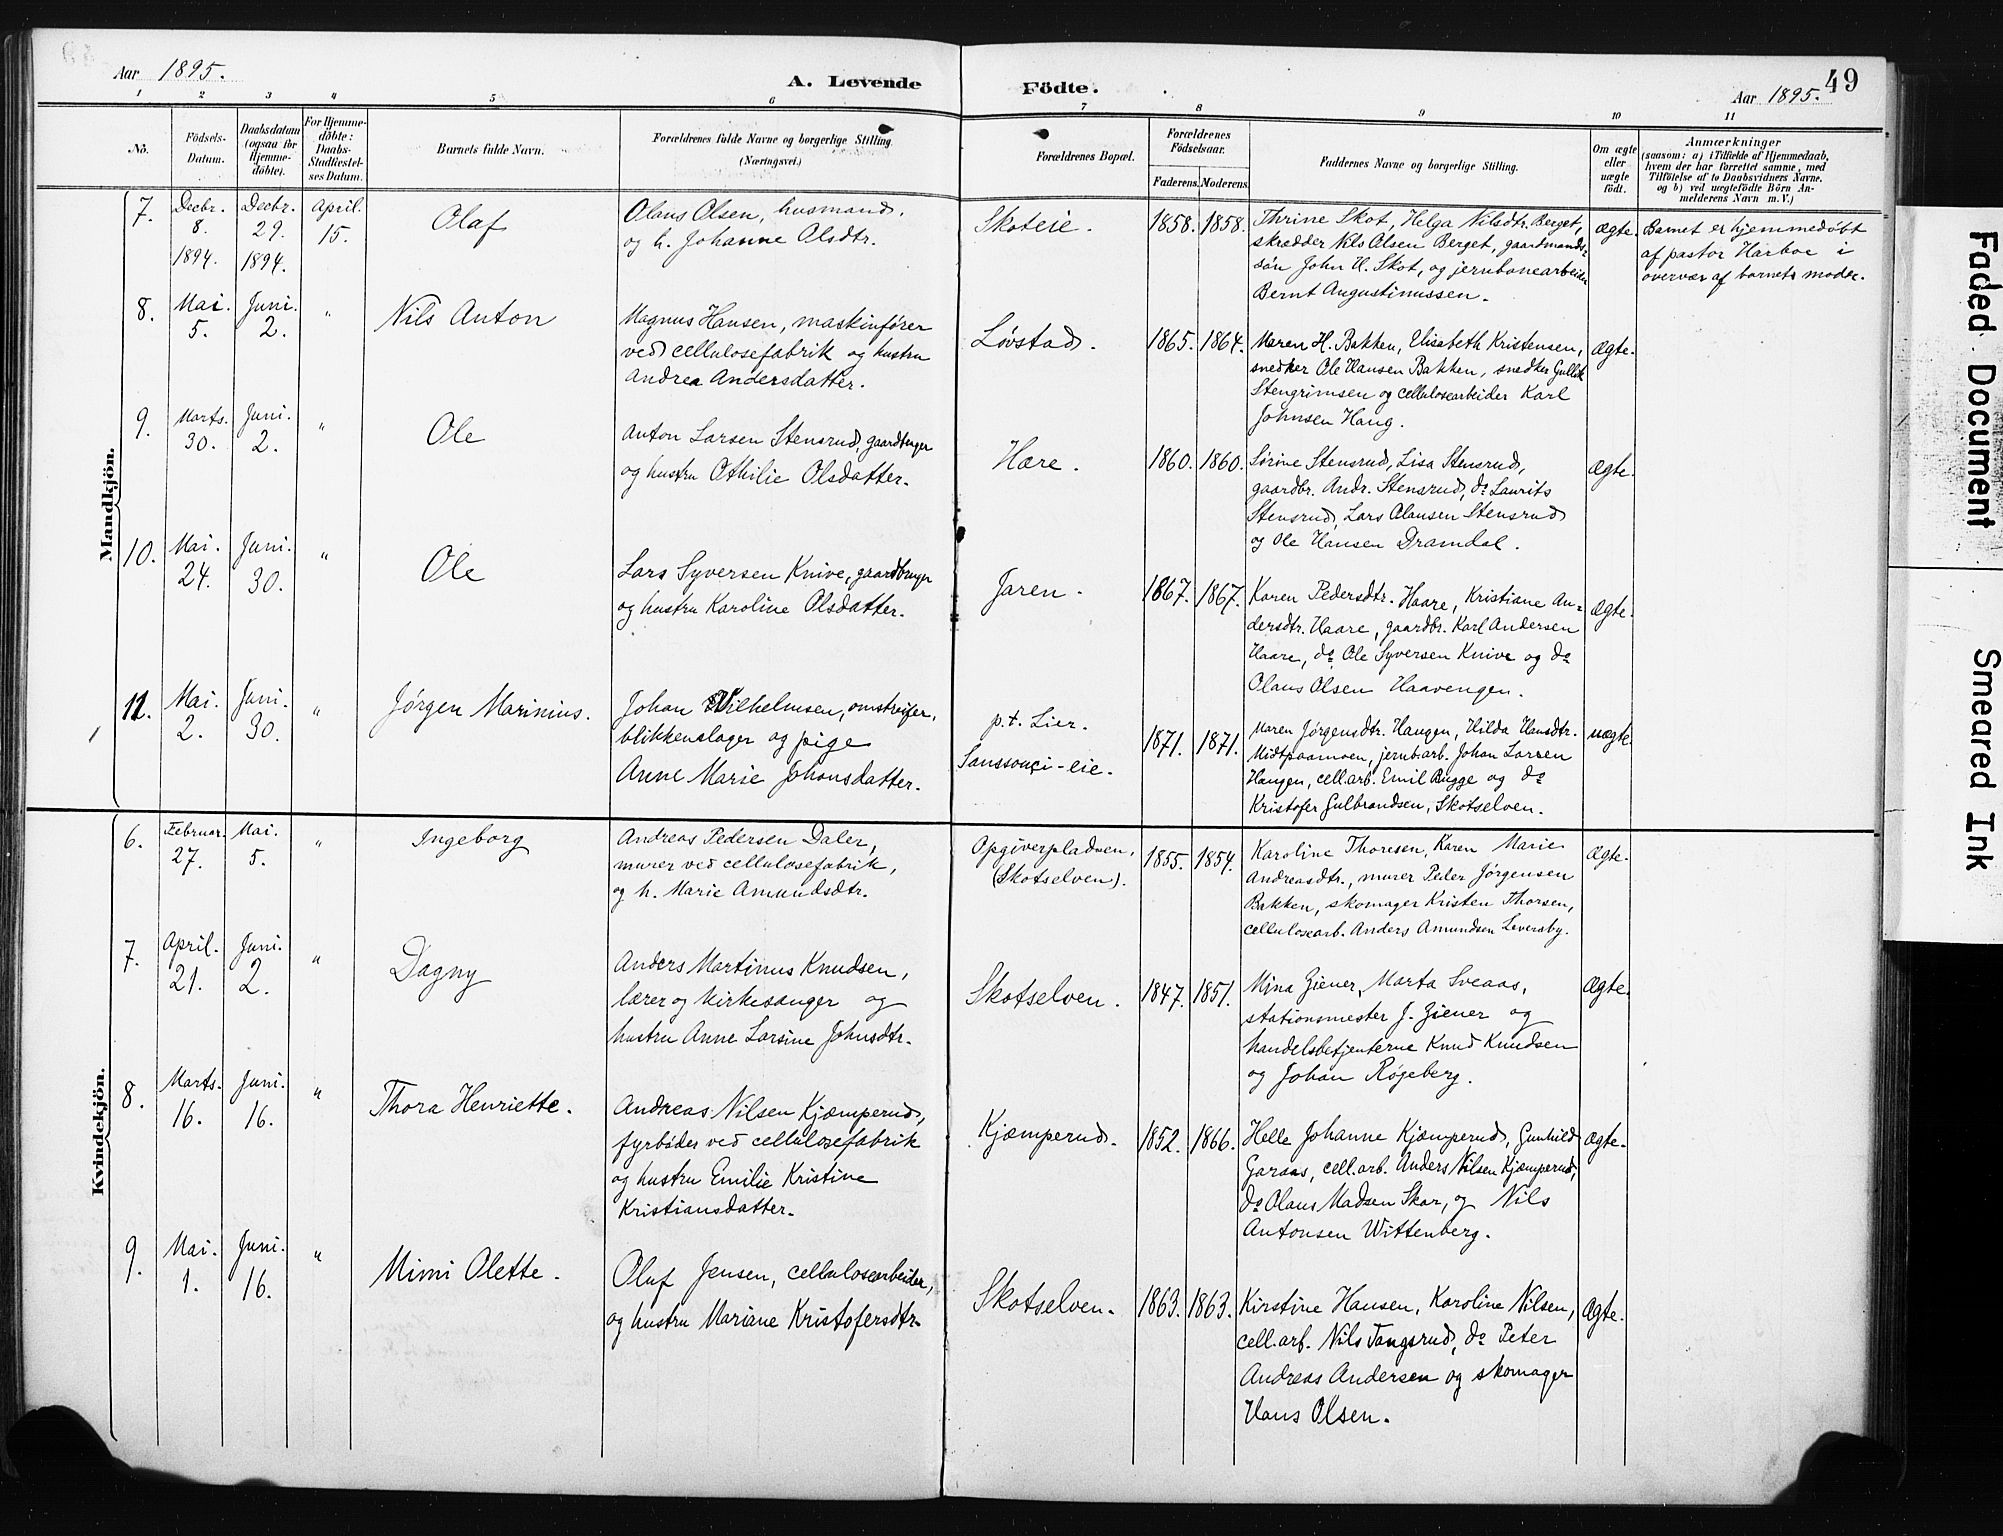 Aar 1895.
A. Levende Födte.
Aar 1895.
49
1 2 3 4 5 6 7 8 9 10 11
No.
Födsels-Datum.
Daabsdatum (ogsaa for Hjemme-döbte).
For Hjemme-döbte: Daabs-Stadfæstel-ses Datum.
Barnets fulde Navn.
Forældrenes fulde Navne og borgerlige Stilling. (Næringsvei.)
Forældrenes Bopæl.
Forældrenes Födselsaar.
Faderens. Moderens.
Faddernes Navne og borgerlige Stilling.
Om ægte eller uægte födt.
Anmærkninger
(saasom: a) i Tilfælde af Hjemmedaab, hvem der har forrettet samme, med Tilföielse af to Daabsvidners Navne, og b) ved uægtefödte Börn Anmelderens Navn m. V.)
Mandkjön.
7. Decbr. 8. 1894. Decbr. 29. 1894. April. 15.
Olaf
Olaus Olsen, husmand,
og h. Johanne Olsdtr.
Skoteie.
1858. 1858.
Thrine Skot, Helga Nilsdtr. Berget,
skrædder Nils Olsen Berget, gaardmands-
søn John H. Skot, og jernbanearbeider
Bernt Augustinussen.
ægte.
Barnet er hjemmedøbt
af pastor Harboe i
overvær af barnets moder.
8. Mai. 5. Juni. 2. "
Nils Anton
Magnus Hansen, maskinfører
ved cellulosefabrik og hustru
Andrea Andersdatter.
Løvstad.
1865. 1864.
Maren H. Bakken, Elisabeth Kristensen,
snedker Ole Hansen Bakken, snedker Gullik
Stengrimsen og cellulosearbeider Karl
Johnsen Haug.
Ægte.
9. Marts. 30. Juni. 2. "
Ole
Anton Larsen Stensrud, gaardbruger
og hustru Othilie Olsdatter.
Hære.
1860. 1860.
Sørine Stensrud, Lisa Stensrud,
gaardbr. Andr. Stensrud, do Laurits
Stensrud, Lars Olausen Stensrud
og Ole Hansen Dramdal.
Ægte.
10. Mai. 24. Juni. 30. "
Ole
Lars Syversen Knive, gaardbruger
og hustru Karoline Olsdatter.
Jaren.
1867. 1867.
Karen Pedersdtr. Haare, Kristiane An-
dersdtr. Haare, gaardbr. Karl Andersen
Haare, do Ole Syversen Knive og do
Olaus Olsen Haavengen.
Ægte.
11. Mai. 2. Juni. 30. "
Jørgen Marinius.
Johan Vilhelmsen, omstreifer,
blikkenslager og pige
Anne Marie Johansdatter.
p.t. Lier.
Sanssouci-eie.
1871. 1871.
Maren Jørgensdtr. Haugen, Hilda Hansdtr.
Midtpaamoen, jernb.arb. Johan Larsen
Haugen, cell.arb. Emil Rugge og do
Kristofer Gulbrandsen, Skotselven.
uægte.
Kvindekjön.
6. Februar. 27. Mai. 5. "
Ingeborg
Andreas Pedersen Daler,
murer ved cellulosefabrik,
og h. Marie Amundsdtr.
Opgiverpladsen,
(Skotselven).
1855. 1854.
Karoline Thoresen, Karen Marie
Andreasdtr., murer Peder Jørgensen
Bakken, skomager Kristen Thorsen,
cellulosearb. Anders Amundsen Leversby.
Ægte.
7. April. 21. Juni. 2. "
Dagny
Anders Martinus Knudsen,
lærer og kirkesanger og
hustru Anne Larsine Johnsdtr.
Skotselven.
1847. 1851.
Mina Ziener, Marta Sveaas,
stationsmester J. Ziener og
handelsbetjenterne Knud Knudsen
og Johan Røgeberg.
Ægte.
8. Marts. 16. Juni. 16. "
Thora Henriette.
Andreas Nilsen Kjæmperud,
fyrbøder ved cellulosefabrik
og hustru Emilie Kristine
Kristiansdatter.
Kjæmperud.
1852. 1866.
Helle Johanne Kjæmperud, Gunhild
Garaas, cell.arb. Anders Nilsen Kjæmperud,
do Olaus Madsen Skar, og Nils
Antonsen Wittenberg.
Ægte.
9. Mai. 1. Juni. 16. "
Mimi Olette.
Oluf Jensen, cellulosearbeider,
og hustru Mariane Kristofersdtr.
Skotselven.
1863. 1863.
Kirstine Hansen, Karoline Nilsen,
cell.arb. Nils Tangsrud, do Peter
Andreas Andersen og skomager
Hans Olsen.
Ægte.
Faded Document
Smeared Ink